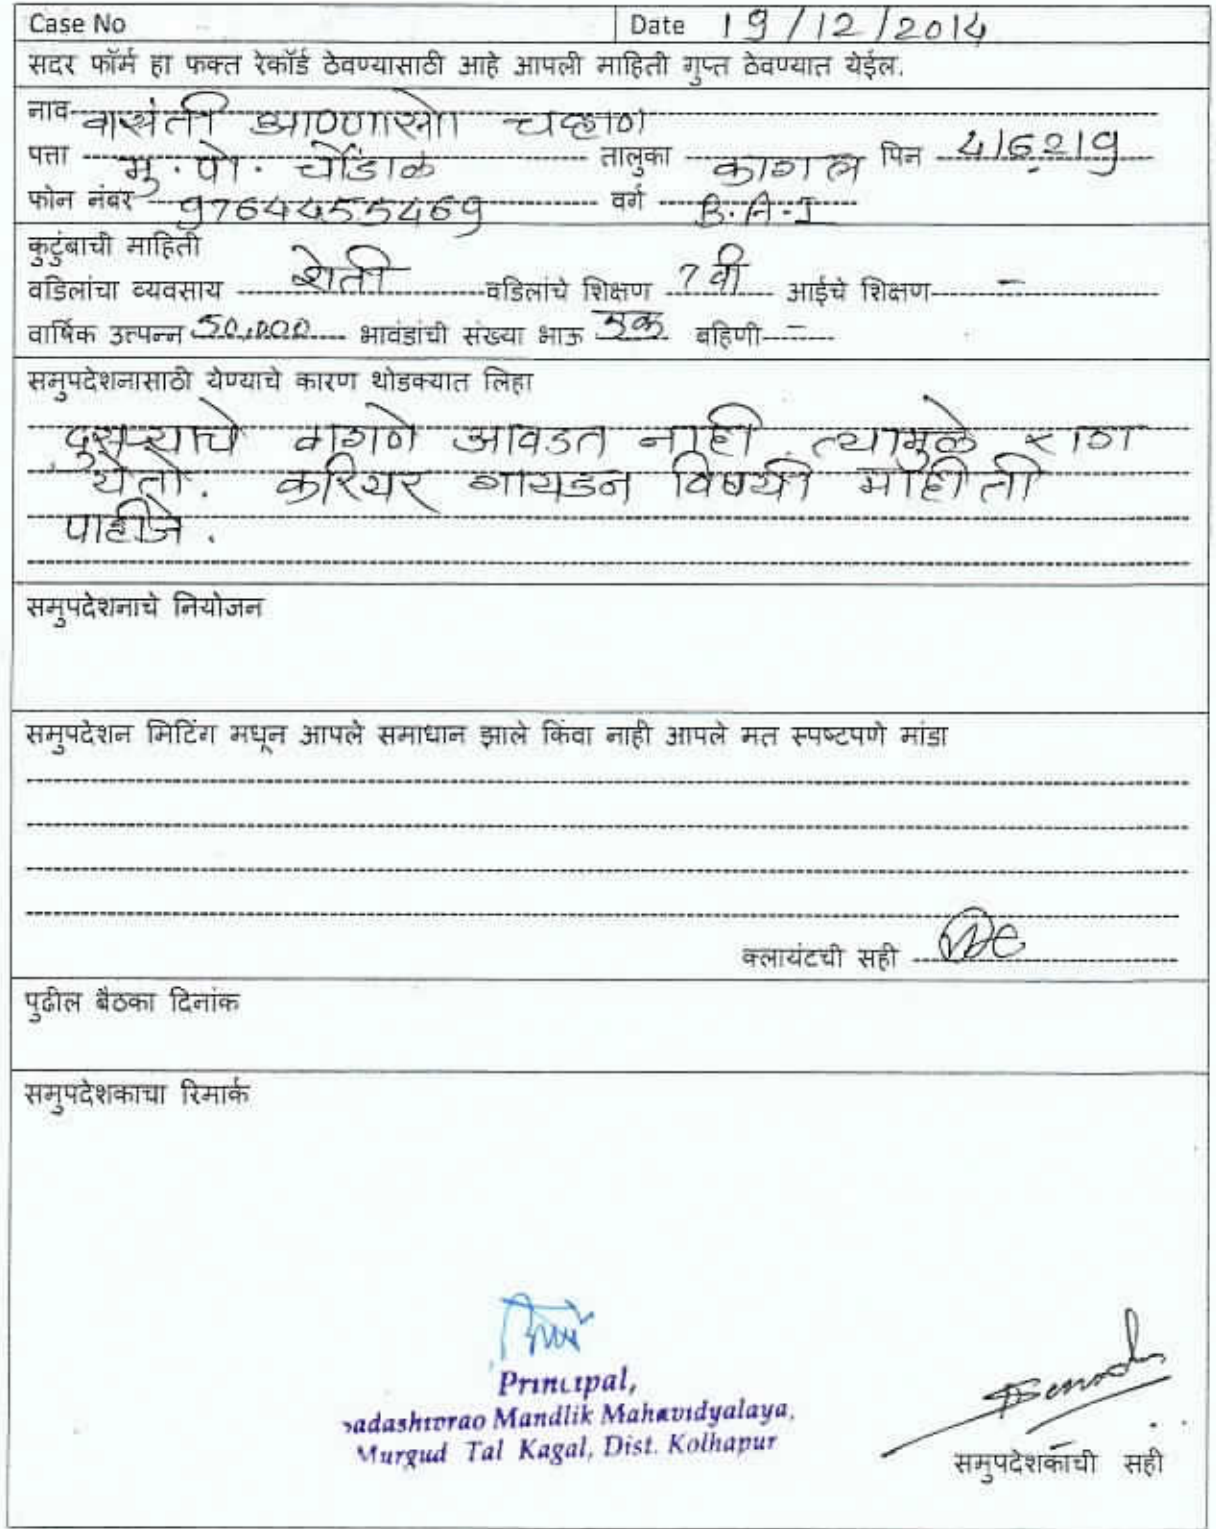 Case No Date 19/12/2014
सदर फॉर्म हा फक्त रेकॉर्ड ठेवण्यासाठी आहे आपली माहिती गुप्त ठेवण्यात येईल.
नाव वासंती आण्णासो चव्हाण
पत्ता मु. पो. चौंडाळ तालुका कागल पिन 416219
फोन नंबर 9764455469 वर्ग B.A-I
कुटुंबाची माहिती
वडिलांचा व्यवसाय शेती वडिलांचे शिक्षण 7 वी आईचे शिक्षण -
वार्षिक उत्पन्न 50,000 भावंडांची संख्या भाऊ एक बहिणी -
समुपदेशनासाठी येण्याचे कारण थोडक्यात लिहा
दुसऱ्याचे वागणे आवडत नाही त्यामुळे राग
येतो. करियर गायडन विषयी माहीती
पाहीजे.
समुपदेशनाचे नियोजन
समुपदेशन मिटिंग मधून आपले समाधान झाले किंवा नाही आपले मत स्पष्टपणे मांडा
क्लायंटची सही
पुढील बैठका दिनांक
समुपदेशकाचा रिमार्क
Principal,
Sadashivrao Mandlik Mahavidyalaya,
Murgud Tal Kagal, Dist. Kolhapur
समुपदेशकाची सही